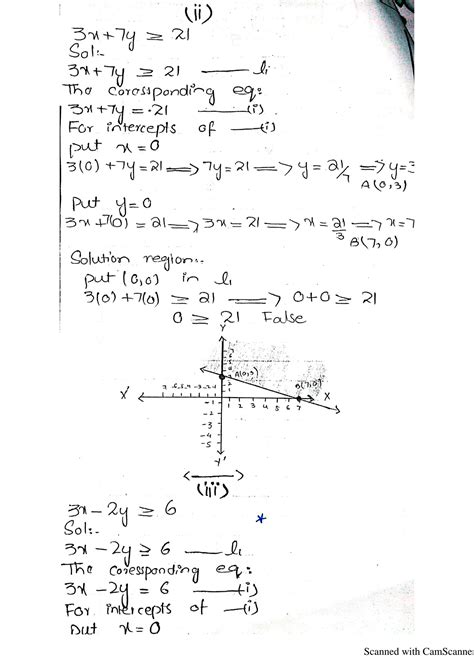 (ii)
3x+7y ≥ 21
Sol:-
3x+7y ≥ 21 —— l₁
The coressponding eq:
3x+7y = 21 ——(i)
For intercepts of —(i)
put x=0
3(0)+7y=21 ⟹ 7y=21 ⟹ y=21/7 ⟹ y=3
A(0,3)
Put y=0
3x+7(0)=21 ⟹ 3x=21 ⟹ x=21/3 ⟹ x=7
B(7,0)
Solution region:-
put (0,0) in l₁
3(0)+7(0) ≥ 21 ⟹ 0+0 ≥ 21
0 ≥ 21 False
Y
A(0,3)
B(7,0)
X' X
1 2 3 4 5 6 7
-1
-2
-3
-4
-5
Y'
(iii)
3x-2y ≥ 6
*
Sol:-
3x-2y ≥ 6 —— l₁
The coressponding eq:
3x-2y = 6 ——(i)
For intercepts of —(i)
put x=0
Scanned with CamScanner